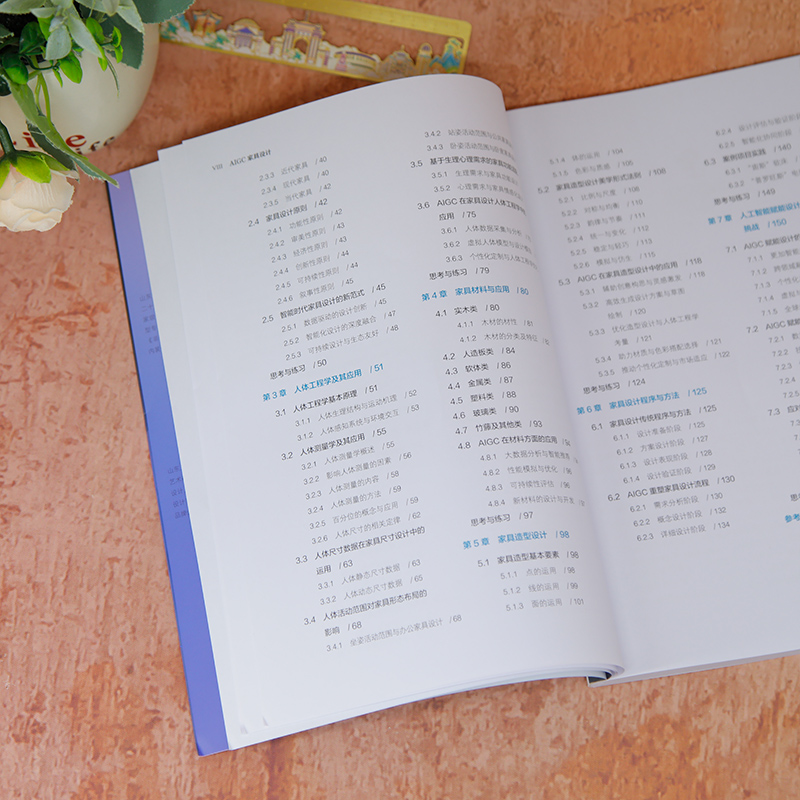 VIII AIGC 家具设计
2.3.3 近代家具 / 40
2.3.4 现代家具 / 40
2.3.5 当代家具 / 42
2.4 家具设计原则 / 42
2.4.1 功能性原则 / 42
2.4.2 审美性原则 / 43
2.4.3 经济性原则 / 44
2.4.4 创新性原则 / 44
2.4.5 可持续性原则 / 44
2.4.6 叙事性原则 / 45
2.5 智能时代家具设计的新范式 / 45
2.5.1 数据驱动的设计创新 / 45
2.5.2 智能化设计的深度融合 / 47
2.5.3 可持续设计与生态友好 / 48
思考与练习 / 50
第 3 章 人体工程学及其应用 / 51
3.1 人体工程学基本原理 / 51
3.1.1 人体生理结构与运动机理 / 52
3.1.2 人体感知系统与环境交互 / 53
3.2 人体测量学及其应用 / 55
3.2.1 人体测量学概述 / 55
3.2.2 影响人体测量的因素 / 56
3.2.3 人体测量的内容 / 58
3.2.4 人体测量的方法 / 59
3.2.5 百分位的概念与应用 / 59
3.2.6 人体尺寸的相关定律 / 62
3.3 人体尺寸数据在家具尺寸设计中的
运用 / 63
3.3.1 人体静态尺寸数据 / 63
3.3.2 人体动态尺寸数据 / 65
3.4 人体活动范围对家具形态布局的
影响 / 68
3.4.1 坐姿活动范围与办公家具设计 / 68
3.4.2 站姿活动范围与
3.4.3 卧姿活动范围与
3.5 基于生理心理需求的家具
3.5.1 生理需求与家具
3.5.2 心理需求与家具
3.6 AIGC 在家具设计人体工程学
应用 / 75
3.6.1 人体数据采集与分析
3.6.2 虚拟人体模型与设计
3.6.3 个性化定制与人体工
思考与练习 / 79
第 4 章 家具材料与应用 / 80
4.1 实木类 / 80
4.1.1 木材的特性 / 81
4.1.2 木材的分类及特征
4.2 人造板类 / 84
4.3 软体类 / 86
4.4 金属类 / 87
4.5 塑料类 / 88
4.6 玻璃类 / 90
4.7 竹藤及其他类 / 93
4.8 AIGC 在材料方面的应用
4.8.1 大数据分析与智能
4.8.2 性能模拟与优化 / 96
4.8.3 可持续性评估
4.8.4 新材料的设计与开发
思考与练习 / 97
第 5 章 家具造型设计 / 98
5.1 家具造型基本要素 / 98
5.1.1 点的运用 / 98
5.1.2 线的运用 / 99
5.1.3 面的运用 / 101
5.1.4 体的运用 / 104
5.1.5 色彩与质感 / 106
5.2 家具造型设计美学形式法则 / 108
5.2.1 比例与尺度 / 108
5.2.2 对称与均衡 / 110
5.2.3 韵律与节奏 / 111
5.2.4 统一与变化 / 112
5.2.5 稳定与轻巧 / 113
5.2.6 模拟与仿生 / 115
5.3 AIGC 在家具造型设计中的应用 / 118
5.3.1 辅助创意构思与灵感激发 / 118
5.3.2 高效生成设计方案与草图
绘制 / 120
5.3.3 优化造型设计与人体工程学
考量 / 121
5.3.4 助力材质与色彩搭配选择 / 121
5.3.5 推动个性化定制与市场适应 / 122
思考与练习 / 124
第 6 章 家具设计程序与方法 / 125
6.1 家具设计传统程序与方法 / 125
6.1.1 设计准备阶段 / 125
6.1.2 方案设计阶段 / 127
6.1.3 设计表现阶段 / 128
6.1.4 设计验证阶段 / 129
6.2 AIGC 重塑家具设计流程 / 130
6.2.1 需求分析阶段 / 130
6.2.2 概念设计阶段 / 132
6.2.3 详细设计阶段 / 134
6.2.4 设计评估与验证阶段
6.2.5 智能化协同阶段
6.3 案例项目实践 / 140
6.3.1
6.3.2
思考与练习 / 149
第 7 章 人工智能赋能设计
挑战 / 150
7.1 AIGC 赋能设计的
7.1.1 更加智能
7.1.2 跨领域
7.1.3 个性化
7.1.4 虚拟
7.1.5 可持
7.2 AIGC 赋
7.2.1 数
7.2.2
7.2.3
7.2.4
7.2.5
7.3 应对
7.3
思考
参考